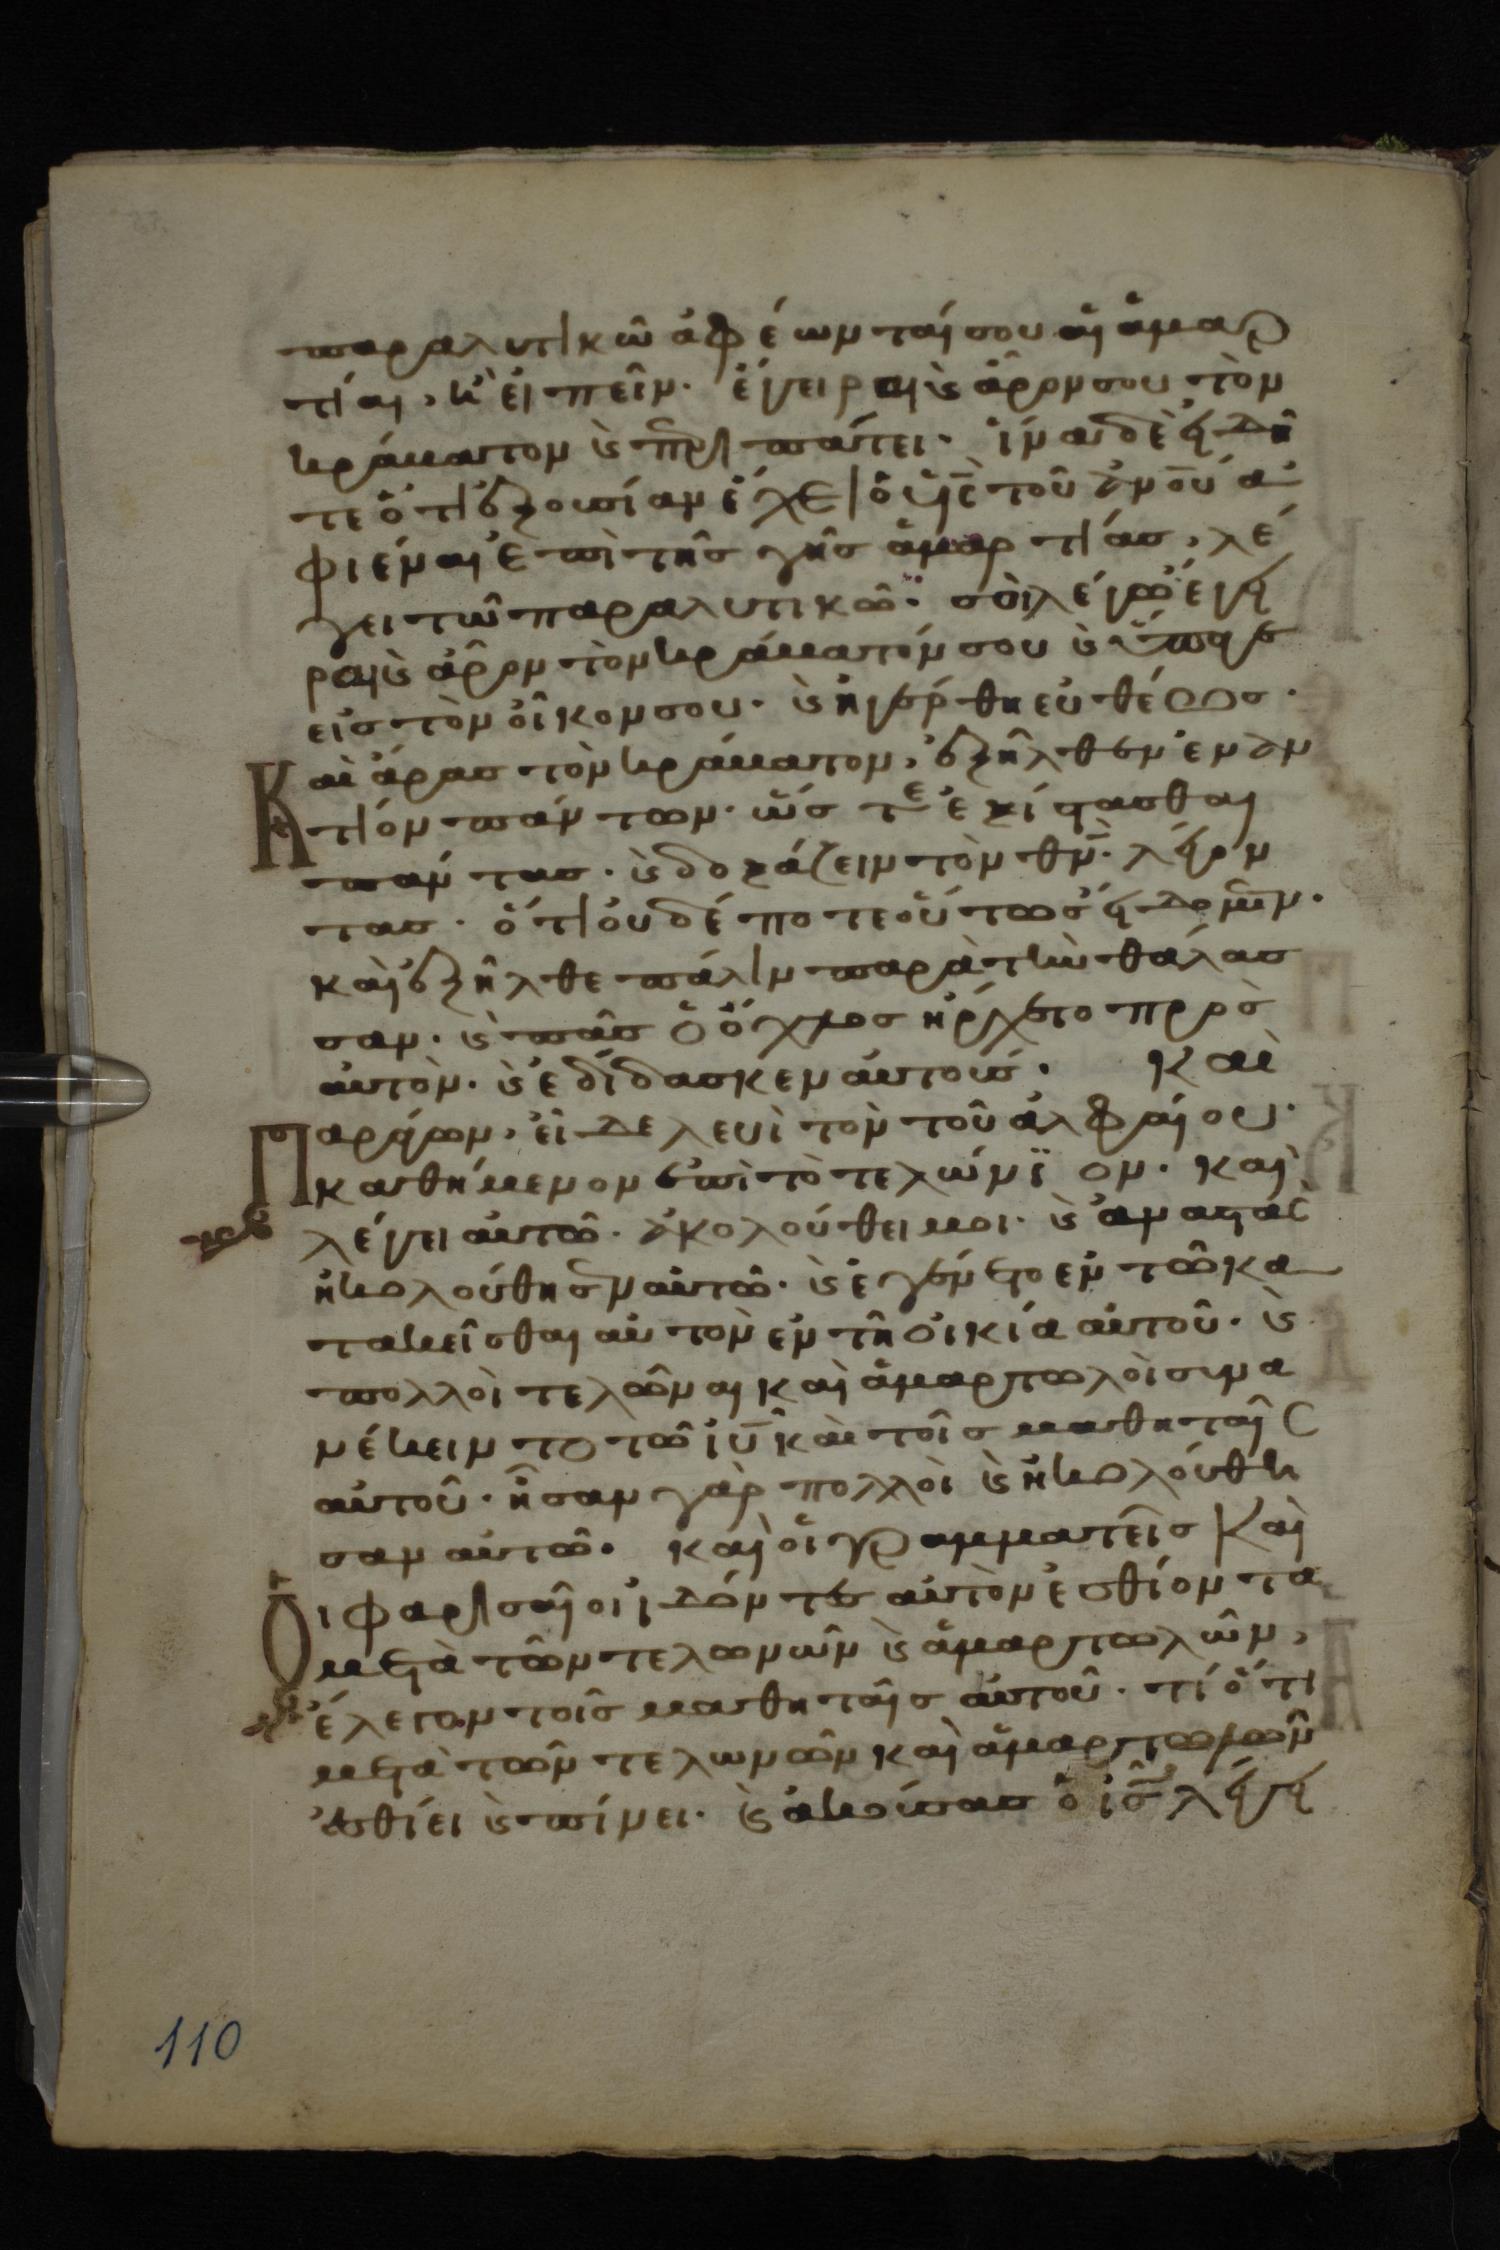 παραλυτικῶ ἀφέωνταί σου αἱ ἁμαρ
τίαι, ἢ εἰπεῖν· ἔγειραι καὶ ἄρον σου τὸν
κράβαττον καὶ περιπάτει· ἵνα δὲ εἰδῆ
τε ὅτι ἐξουσίαν ἔχει ὁ υἱὸς τοῦ ἀνου ἀ
φιέναι ἐπὶ τῆς γῆς ἁμαρτίας, λέ
γει τῶ παραλυτικῶ· σοὶ λέγω ἔγει
ραι καὶ ἄρον τὸν κράβαττόν σου καὶ ὕπαγε
εἰς τὸν οἶκον σου· καὶ ἠγέρθη εὐθέως·
Καὶ ἄρας τὸν κράβαττον, ἐξῆλθεν ἐναν
τίον πάντων· ὥστε ἐξίστασθαι
πάντας· καὶ δοξάζειν τὸν θν· λέγον
τας· ὅτι οὐδέποτε οὕτως εἴδομεν·
καὶ ἐξῆλθε πάλιν παρὰ τὴν θάλασ
σαν· καὶ πᾶς ὁ ὄχλος ἤρχετο πρὸς
αὐτὸν· καὶ ἐδίδασκεν αὐτούς· Καὶ
Παράγων, εἶδε λευὶ τὸν τοῦ ἀλφαίου·
καθήμενον ἐπὶ τὸ τελώνϊον· καὶ
λέγει αὐτῶ· ἀκολούθει μοι· καὶ ἀναστὰς
ἠκολούθησεν αὐτῶ· καὶ ἐγένετο ἐν τῶ κα
τακεῖσθαι αὐτὸν ἐν τῆ οἰκία αὐτοῦ· καὶ
πολλοὶ τελῶναι καὶ ἁμαρτωλοὶ συνα
νέκειντο τῶ ιυ καὶ τοῖς μαθηταῖς
αὐτοῦ· ἦσαν γὰρ πολλοὶ καὶ ἠκολούθη
σαν αὐτῶ· καὶ οἱ γραμματεῖς Καὶ
Οἱ φαρισαῖοι ἰδόντες αὐτὸν ἐσθίοντα
μετὰ τῶν τελωνῶν καὶ ἁμαρτωλῶν,
ἔλεγον τοῖς μαθηταῖς αὐτοῦ· τί ὅτι
μετὰ τῶν τελωνῶν καὶ ἁμαρτωλῶν
ἐσθίει καὶ πίνει· καὶ ἀκούσας ὁ ις λέγει
110